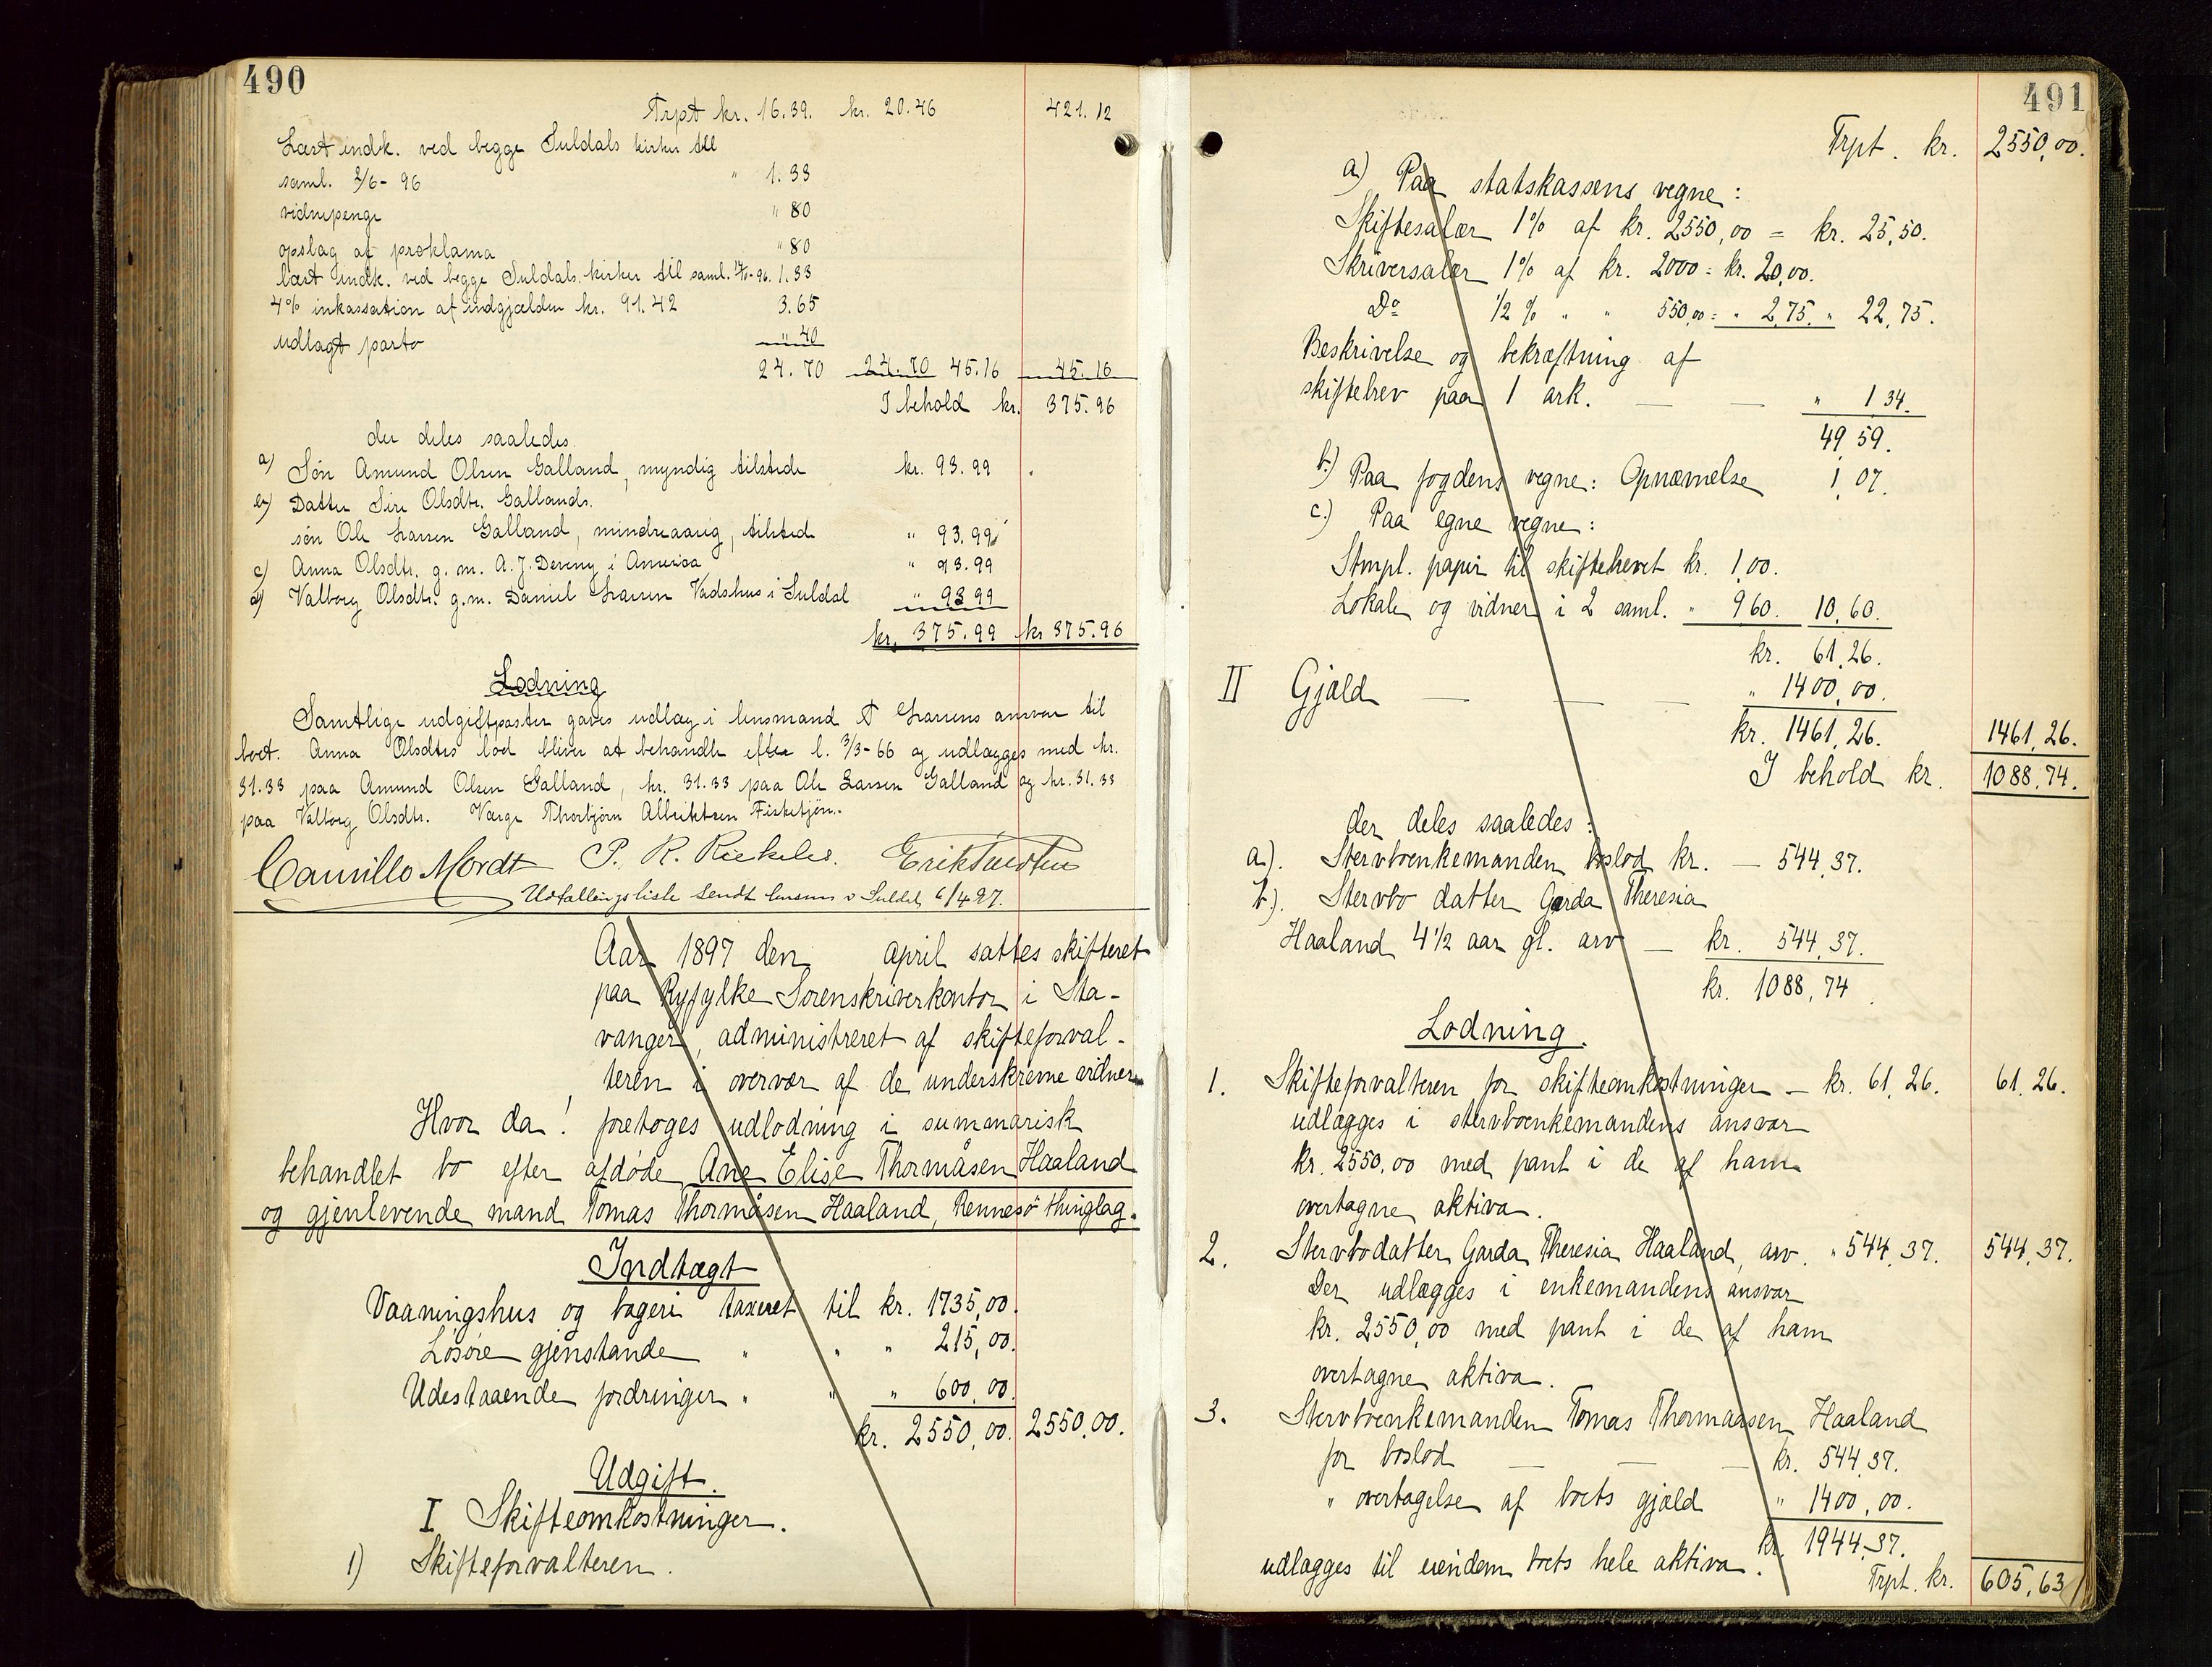 490
Trpt kr. 16.39. kr. 20.46 421.12
Læst indk. ved begge Suldals kirker till
saml. 2/6-96 " 1.33
vidnepenge " 80
opslag af proklama " 80
læst indk. ved begge Suldals kirker til saml. 96. 1.33
4% inkassation af indgjælden kr. 91.42 3.65
udlagt porto " 40
24.70 24.70 45.16 45.16
I behold kr. 375.96
der deles saaledes.
a) Søn Amund Olsen Galland, myndig tilstede kr. 93.99
b) Datter Siri Olsdtr. Gallands.
søn Ole Larsen Galland, mindreaarig, tilstede " 93.99
c) Anna Olsdtr. g.m. A.J. i America " 93.99
d) Valborg Olsdtr. g.m. Daniel Larsen Vadshus i Suldal " 93.99
kr. 375.99 kr 375.96
Lodning
Samtlige udgiftposter gives udlæg i lensmand Larsens ansvar til
boet. Anna Olsdtrs lod bliver at behandle efter l. 3/3-66 og udlægges med kr.
31.33 paa Amund Olsen Galland, kr. 31.33 paa Ole Larsen Galland og kr. 31.33
paa Valborg Olsdtr. Værge Thorbjørn Albriktsen Fisketjøn.
Camillo Mordt P. R. Riekeles. Erik Knudsen
Udfaldingsliste sendt lensm i Suldal 6/4 97.
Aar 1897 den april sattes skifteret
paa Ryfylke Sorenskriverkontor i Sta-
vanger, administreret af skifteforval-
teren i overvær af de underskrevne vidner
Hvor da! foretoges udlodning i summarisk
behandlet bo efter afdøde Ane Elise Thormåsen Haaland
og gjenlevende mand Tomas Thormåsen Haaland, Rennesö thinglag.
Indtægt
Vaaningshus og bageri taxeret til kr. 1735,00.
Løsøre gjenstande " " " 215,00.
Udestaaende fordringer " " " 600,00.
kr. 2550,00. 2550,00.
Udgift.
I Skifteomkostninger.
1) Skifteforvalteren.
491
Trpt. kr. 2550,00.
a) Paa statskassens vegne:
Skiftesalær 1% af kr. 2550,00 = kr. 25,50.
Skriversalær 1% af kr. 2000 = kr. 20,00.
Do 1/2 % " " 550,00 = " 2,75. " 22,75.
Beskrivelse og bekræftning af
skiftebrev paa 1 ark. — — " 1 34.
49,59.
b.) Paa fogdens vegne: Opnævnelse 1,07.
c.) Paa egne vegne:
Stmpl. papir til skiftebrevet kr. 1,00.
Lokale og vidner i 2 saml. " 9 60. 10,60.
kr. 61,26.
II Gjæld — — — " 1400,00.
kr. 1461,26. 1461,26.
I behold kr. 1088,74.
der deles saaledes:
a). Stervboenkemanden boslod kr. — 544,37.
b.). Stervbo datter Garda Theresia
Haaland 4 1/2 aar gl. arv — kr. 544,37.
kr. 1088,74
Lodning.
1. Skifteforvalteren for skifteomkostninger — kr. 61,26. 61,26.
udlægges i stervboenkemandens ansvar
kr. 2550,00 med pant i de af ham
overtagne aktiva.
2. Stervbodatter Garda Theresia Haaland, arv. " 544,37. 544,37.
Der udlægges i enkemandens ansvar
kr. 2550,00 med pant i de af ham
overtagne aktiva.
3. Stervboenkemanden Tomas Thormaasen Haaland
for boslod — — — kr. 544,37.
" overtagelse af boets gjæld " 1400,00.
kr. 1944,37.
udlægges til eiendom boets hele aktiva.
Trpt. kr. 605,63